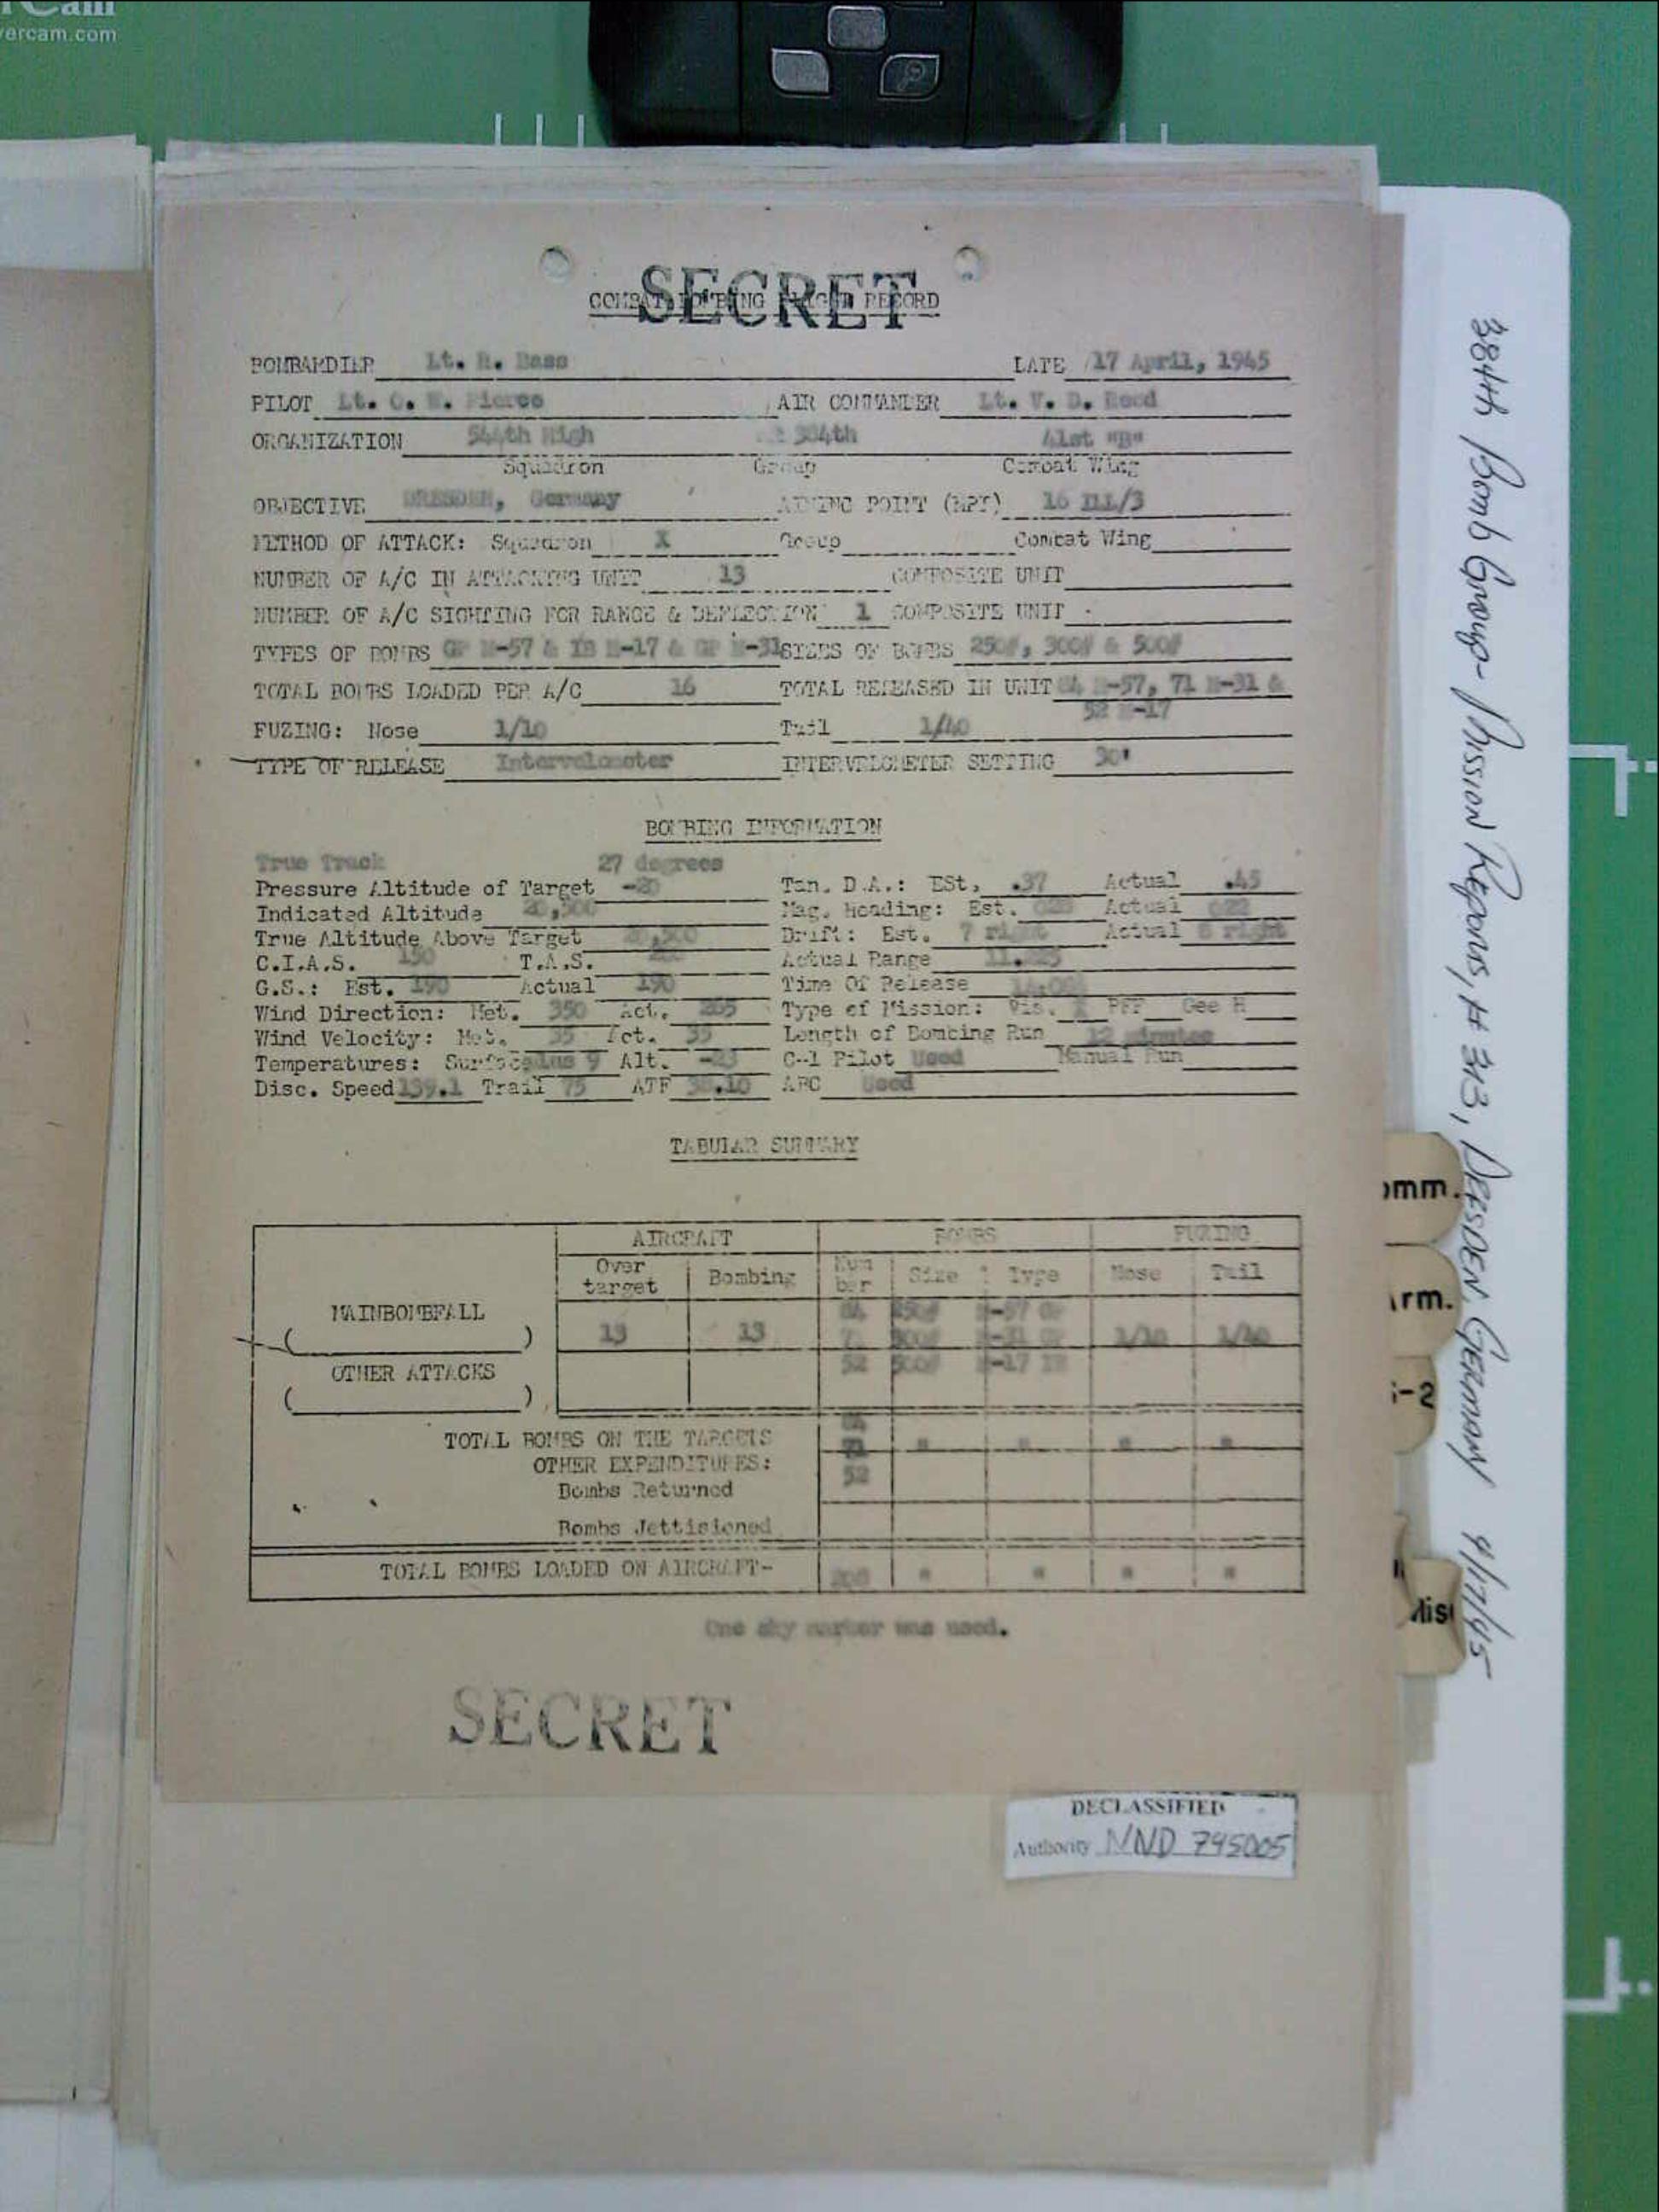 vercam.com
SECRET
COMBAT BOMBING FLIGHT RECORD
BOMBARDIER Lt. R. Bass DATE 17 April, 1945
PILOT Lt. O. W. Pierce AIR COMMANDER Lt. V. D. Reed
ORGANIZATION 544th High 384th 41st "B"
Squadron Group Combat Wing
OBJECTIVE DRESDEN, Germany AIMING POINT (MPI)
METHOD OF ATTACK: Squadron X Group Combat Wing
NUMBER OF A/C IN ATTACKING UNIT 13 COMPOSITE UNIT
NUMBER OF A/C SIGHTING FOR RANGE & DEFLECTION 1 COMPOSITE UNIT
TYPES OF BOMBS GP M-57 & IB M-17 & GP M-31 SIZES OF BOMBS 250#, 300# & 500#
TOTAL BOMBS LOADED PER A/C 16 TOTAL RELEASED IN UNIT 84 M-57, 71 M-31 &
52 M-17
FUZING: Nose 1/10 Tail 1/40
TYPE OF RELEASE Intervalometer INTERVALOMETER SETTING 30'
BOMBING INFORMATION
True Track 27 degrees
Pressure Altitude of Target -20 Tan. D.A.: Est. .37 Actual .45
Indicated Altitude 20,500 Mag. Heading: Est. Actual 022
True Altitude Above Target 20,500 Drift: Est. 7 right Actual right
C.I.A.S. 150 T.A.S. Actual Range
G.S.: Est. 190 Actual 190 Time Of Release
Wind Direction: Met. 350 Act. 265 Type of Mission: Vis. X PFF Gee H
Wind Velocity: Met. 35 Act. 35 Length of Bombing Run 12 minutes
Temperatures: Surface plus 9 Alt. -23 C-1 Pilot Used Manual Run
Disc. Speed 139.1 Trail 75 ATF 38.10 ABC Used
TABULAR SUMMARY
AIRCRAFT BOMBS FUZING
Over target Bombing Num ber Size Type Nose Tail
MAINBOMBFALL 84 250# M-57 GP
( ) 13 13 71 300# M-31 GP 1/10 1/40
OTHER ATTACKS 52 500# M-17 IB
( )
84
TOTAL BOMBS ON THE TARGETS 71 " " " "
OTHER EXPENDITURES: 52
Bombs Returned
Bombs Jettisioned
TOTAL BOMBS LOADED ON AIRCRAFT- " " " "
One sky marker was used.
SECRET
DECLASSIFIED
Authority NND 745005
384th Bomb Group- Mission Reports, # 313, DRESDEN, GERMANY 4/17/45
omm.
rm.
-2
Mis